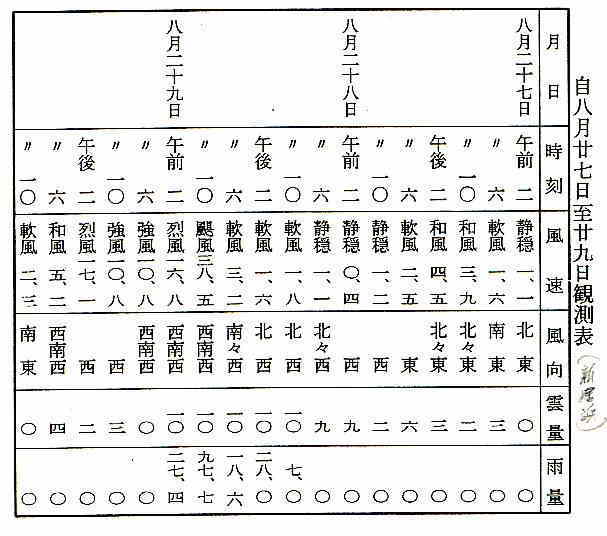 自八月廿七日至廿九日観測表
月日 時刻 風速 風向 雲量 雨量
八月二十七日 午前 二 静穏 一、一 北東 〇 〇
〃 六 軟風 一、六 南東 三 〇
〃 一〇 和風 三、九 北々東 二 〇
午後 二 和風 四、五 北々東 三 〇
〃 六 軟風 二、五 東 六 〇
〃 一〇 静穏 一、二 西 二 〇
八月二十八日 午前 二 静穏 〇、四 西 九 〇
〃 六 静穏 一、一 北々西 九 〇
〃 一〇 軟風 一、八 北西 一〇 七、〇
午後 二 軟風 一、六 北西 一〇 二八、〇
〃 六 軟風 三、二 南々西 一〇 一八、六
〃 一〇 颶風 三八、五 西南西 一〇 九七、七
八月二十九日 午前 二 烈風 一六、八 西南西 一〇 二七、四
〃 六 強風 一〇、八 西南西 〇 〇
〃 一〇 強風 一〇、八 西 三 〇
午後 二 烈風 一七、一 西 二 〇
〃 六 和風 五、二 西南西 四 〇
〃 一〇 軟風 二、三 南東 〇 〇